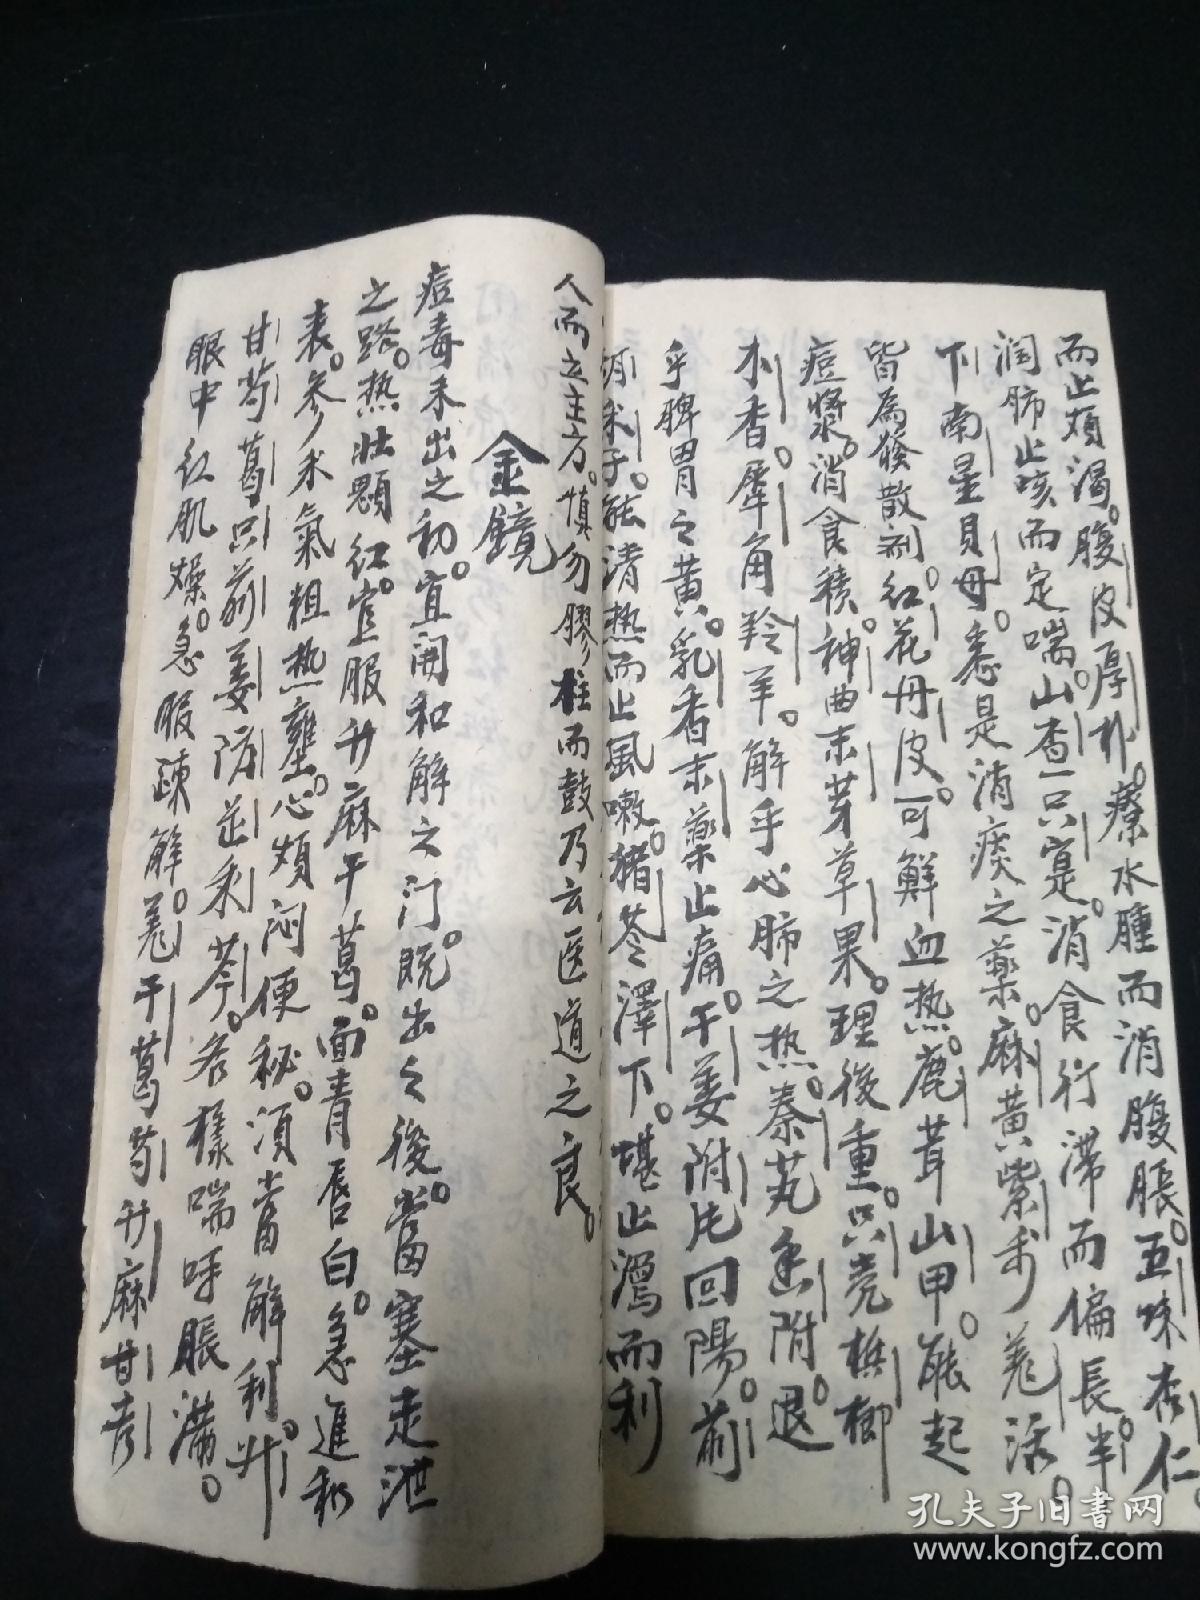 而止煩渴。腹皮厚朴。療水腫而消腹脹。五味杏仁。
潤肺止咳而定喘。山查一只寔。消食行滯而偏長。半
下南星貝母。悉是消痰之藥。麻黃紫羌活。
皆為發散剤。紅花丹皮。可鮮血热。鹿茸山甲。能起
痘漿。消食積。神曲末芽草果。理後重。只壳檳榔
木香。犀角羚羊。解乎心肺之热。秦艽附。退
乎脾胃之黃。乳香末藥止痛。干姜附片回陽。前
胡米子。能清热而止風嗽。猪苓澤下。堪止瀉而利
人而立主方。慎勿膠柱而鼓乃云医道之良。
金鏡
痘毒未出之初。宜開和解之门。既出之後。當塞走泄
之路。热壯顋紅。宜服升麻干葛。面青唇白。急進和
表。参术氣粗热壅。心煩闷便秘。須當解利。升
甘芍葛只前姜防芷利芩。各樣喘呼脹满。
眼中紅肌燥。急服疎解。羗干葛芍升麻甘
孔夫子旧书网
www.kongfz.com